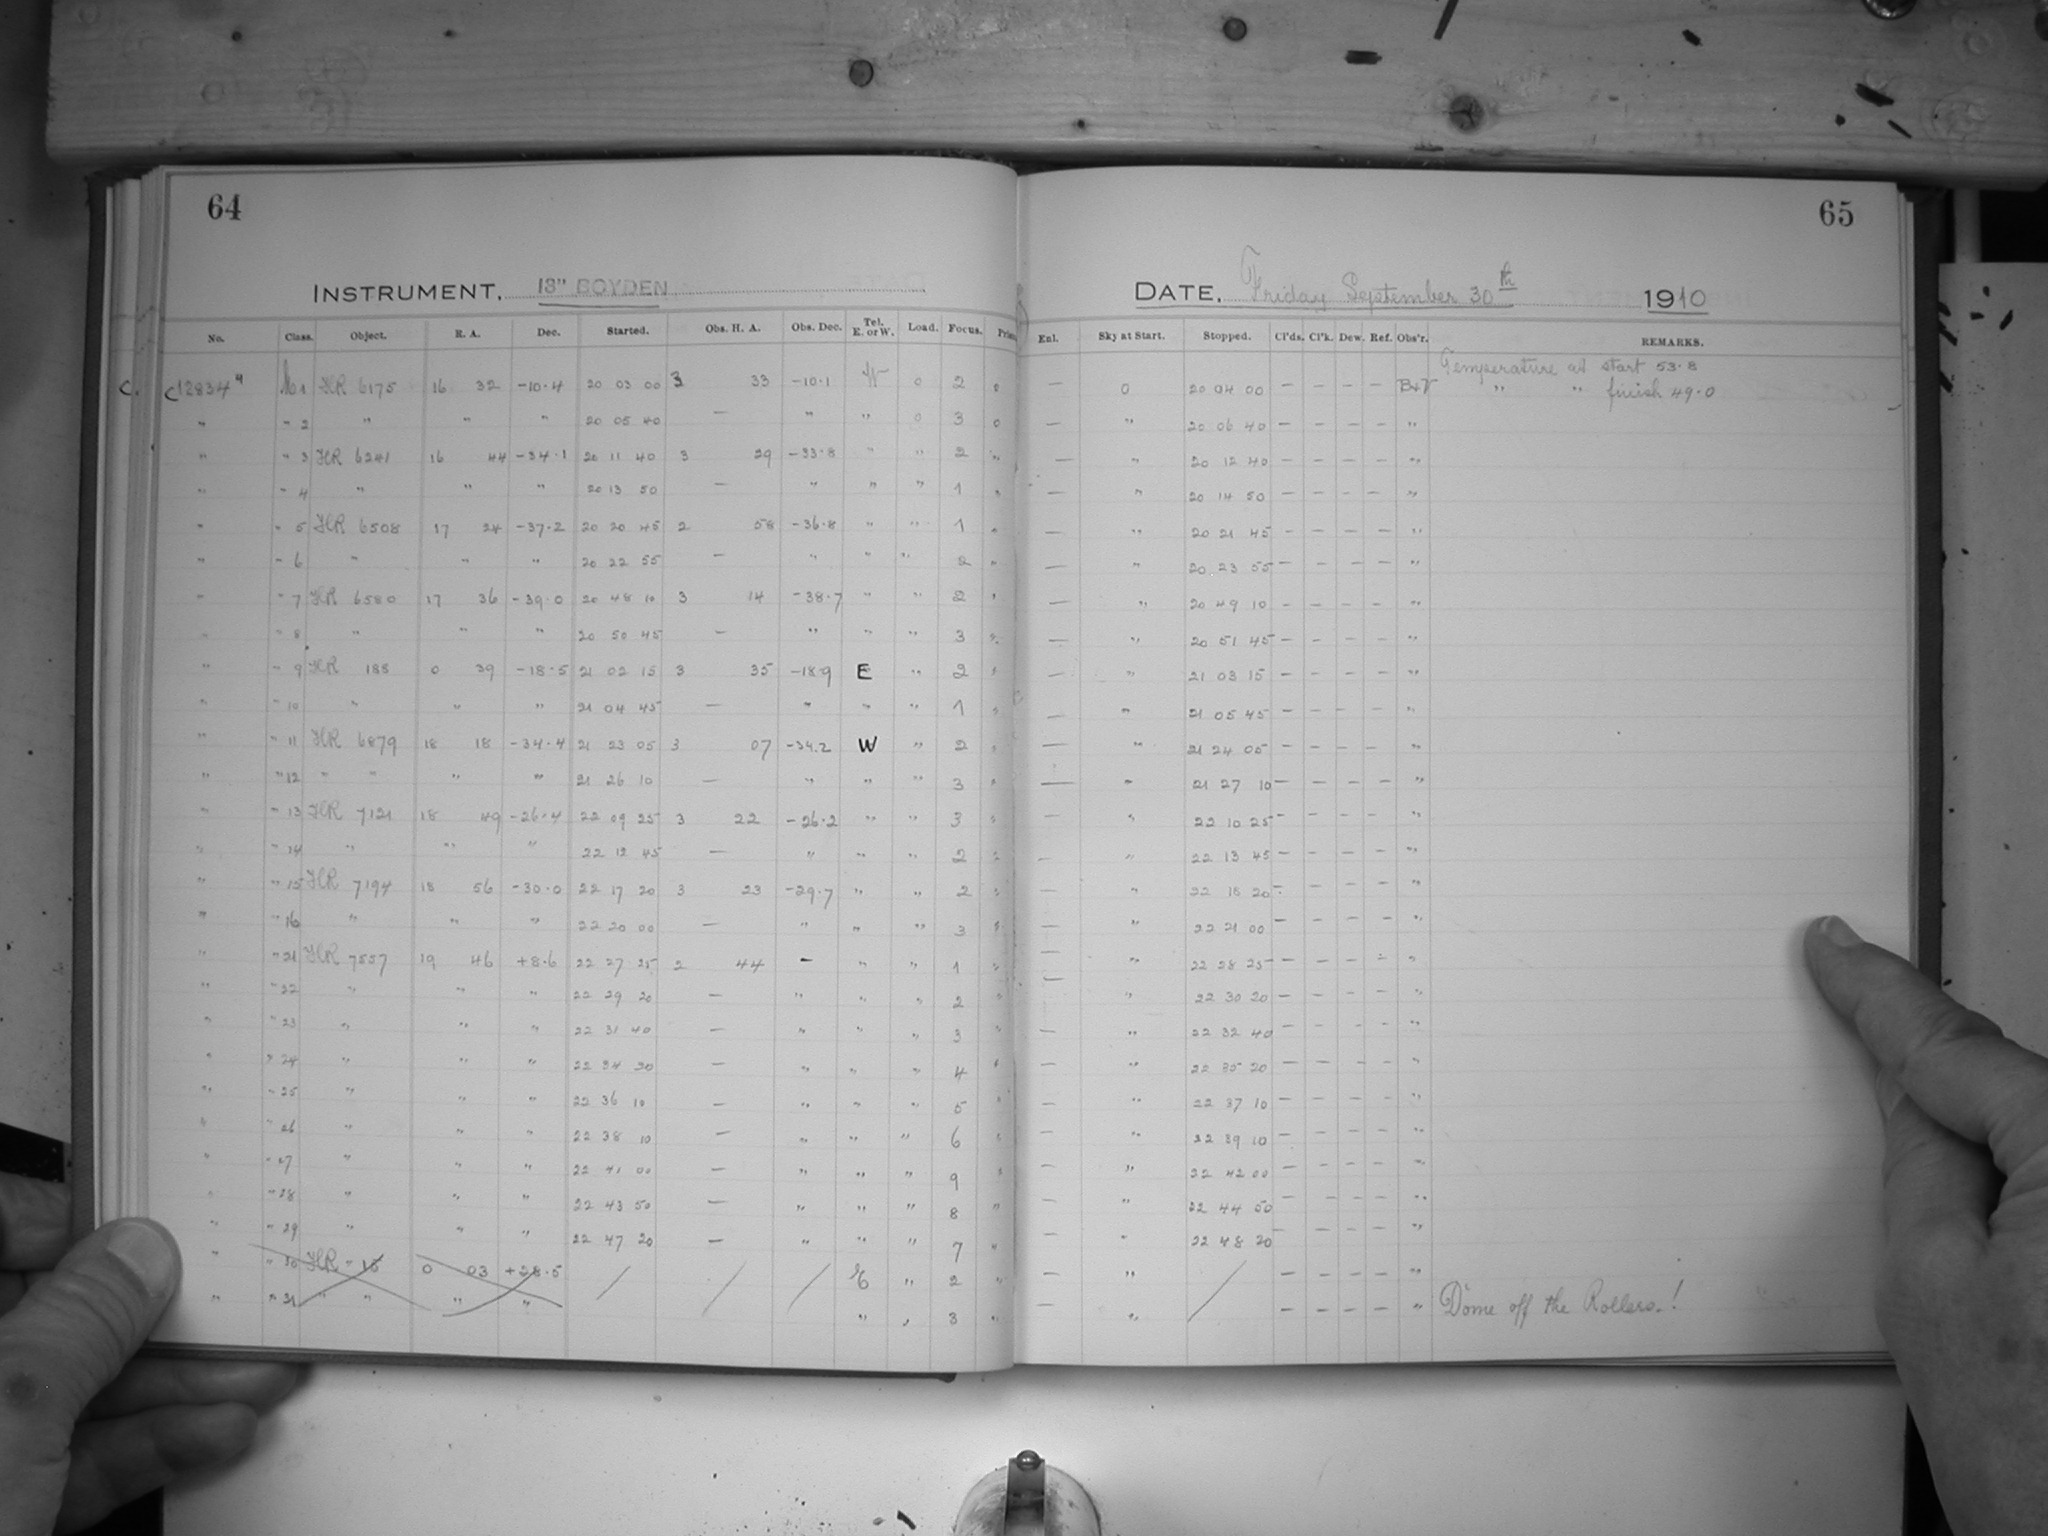 64
INSTRUMENT. 13" BOYDEN
No. Class. Object. R. A. Dec. Started. Obs. H. A. Obs. Dec. Tel. E. or W. Load. Focus.
C. C12834 No 1 HR 6175 16 32 -10.4 20 03 00 3 33 -10.1 W 0 2 0
" " 2 " " " 20 05 40 — " " 0 3 0
" " 3 HR 6241 16 44 -34.1 20 11 40 3 29 -33.8 " " 2 "
" " 4 " " " 20 13 50 — " " " 1 "
" " 5 HR 6508 17 24 -37.2 20 20 45 2 58 -36.8 " " 1 "
" " 6 " " " 20 22 55 — " " " 2 "
" " 7 HR 6580 17 36 -39.0 20 48 10 3 14 -38.7 " " 2 "
" " 8 " " " 20 50 45 — " " " 3 "
" " 9 HR 188 0 39 -18.5 21 02 15 3 35 -18.9 E " 2 "
" " 10 " " " 21 04 45 — " " " 1 "
" " 11 HR 6879 18 18 -34.4 21 23 05 3 07 -34.2 W " 2 "
" " 12 " " " " 21 26 10 — " " " 3 "
" " 13 HR 7121 18 49 -26.4 22 09 25 3 22 -26.2 " " 3 "
" " 14 " " " 22 12 45 — " " " 2 "
" " 15 HR 7194 18 56 -30.0 22 17 20 3 23 -29.7 " " 2 "
" " 16 " " " 22 20 00 — " " " 3 "
" " 21 HR 7557 19 46 +8.6 22 27 25 2 44 — " " 1 "
" " 22 " " " 22 29 20 — " " " 2 "
" " 23 " " " 22 31 40 — " " " 3 "
" " 24 " " " 22 34 20 — " " " 4 "
" " 25 " " " 22 36 10 — " " " 5 "
" " 26 " " " 22 38 10 — " " " 6 "
" " 27 " " " 22 41 00 — " " " 9 "
" " 28 " " " 22 43 50 — " " " 8 "
" " 29 " " " 22 47 20 — " " " 7 "
" " 30 HR 15 0 03 +28.5 E " 2 "
" " 31 " " " " " " 3 "
65
DATE. Friday September 30th 1910
Enl. Sky at Start. Stopped. Cl'ds. Cl'k. Dew. Ref. Obs'r. REMARKS.
Temperature at start 53.8
— 0 20 04 00 — — — — B&V " " finish 49.0
— " 20 06 40 — — — — "
— " 20 12 40 — — — — "
— " 20 14 50 — — — — "
— " 20 21 45 — — — — "
— " 20 23 55 — — — — "
— " 20 49 10 — — — — "
— " 20 51 45 — — — — "
— " 21 03 15 — — — — "
— " 21 05 45 — — — — "
— " 21 24 05 — — — — "
— " 21 27 10 — — — — "
— " 22 10 25 — — — — "
— " 22 13 45 — — — — "
— " 22 18 20 — — — — "
— " 22 21 00 — — — — "
— " 22 28 25 — — — — "
— " 22 30 20 — — — — "
— " 22 32 40 — — — — "
— " 22 35 20 — — — — "
— " 22 37 10 — — — — "
— " 22 39 10 — — — — "
— " 22 42 00 — — — — "
— " 22 44 50 — — — — "
— " 22 48 20 — — — — "
— " — — — — "
— " — — — — " Dome off the Rollers.!